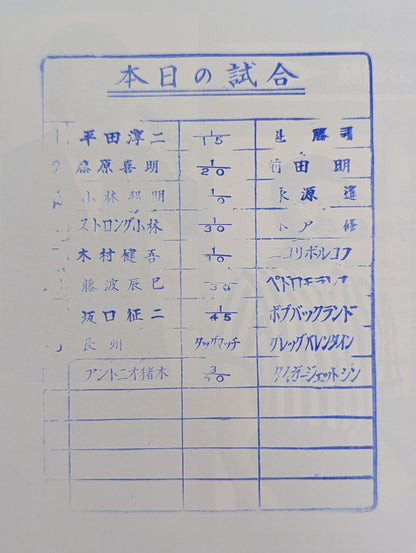 本日の試合
1 平田淳二 1/15 勝司
2 藤原喜明 1/20 前田 明
小林邦明 永源 遙
ストロング小林 1/30 木戸 修
木村健吾 1/30 ニコリボルコフ
藤波辰巳 30
坂口征二 1/45 ボブバックランド
長州 タッグマッチ グレッグバレンタイン
アントニオ猪木 タイガージェットシン